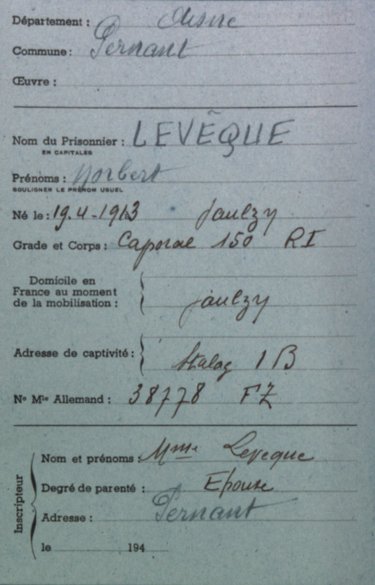 Département : Aisne
Commune : Pernant
Œuvre :
Nom du Prisonnier : LEVÊQUE
EN CAPITALES
Prénoms : Norbert
SOULIGNER LE PRÉNOM USUEL
Né le : 19.4-1913 Jaulzy
Grade et Corps : Caporal 150 RI
Domicile en
France au moment
de la mobilisation :
Jaulzy
Adresse de captivité : Stalag 1 B
No Mle Allemand : 38778 FZ
Inscripteur
Nom et prénoms : Mme Leveque
Degré de parenté : Epouse
Adresse : Pernant
le 194